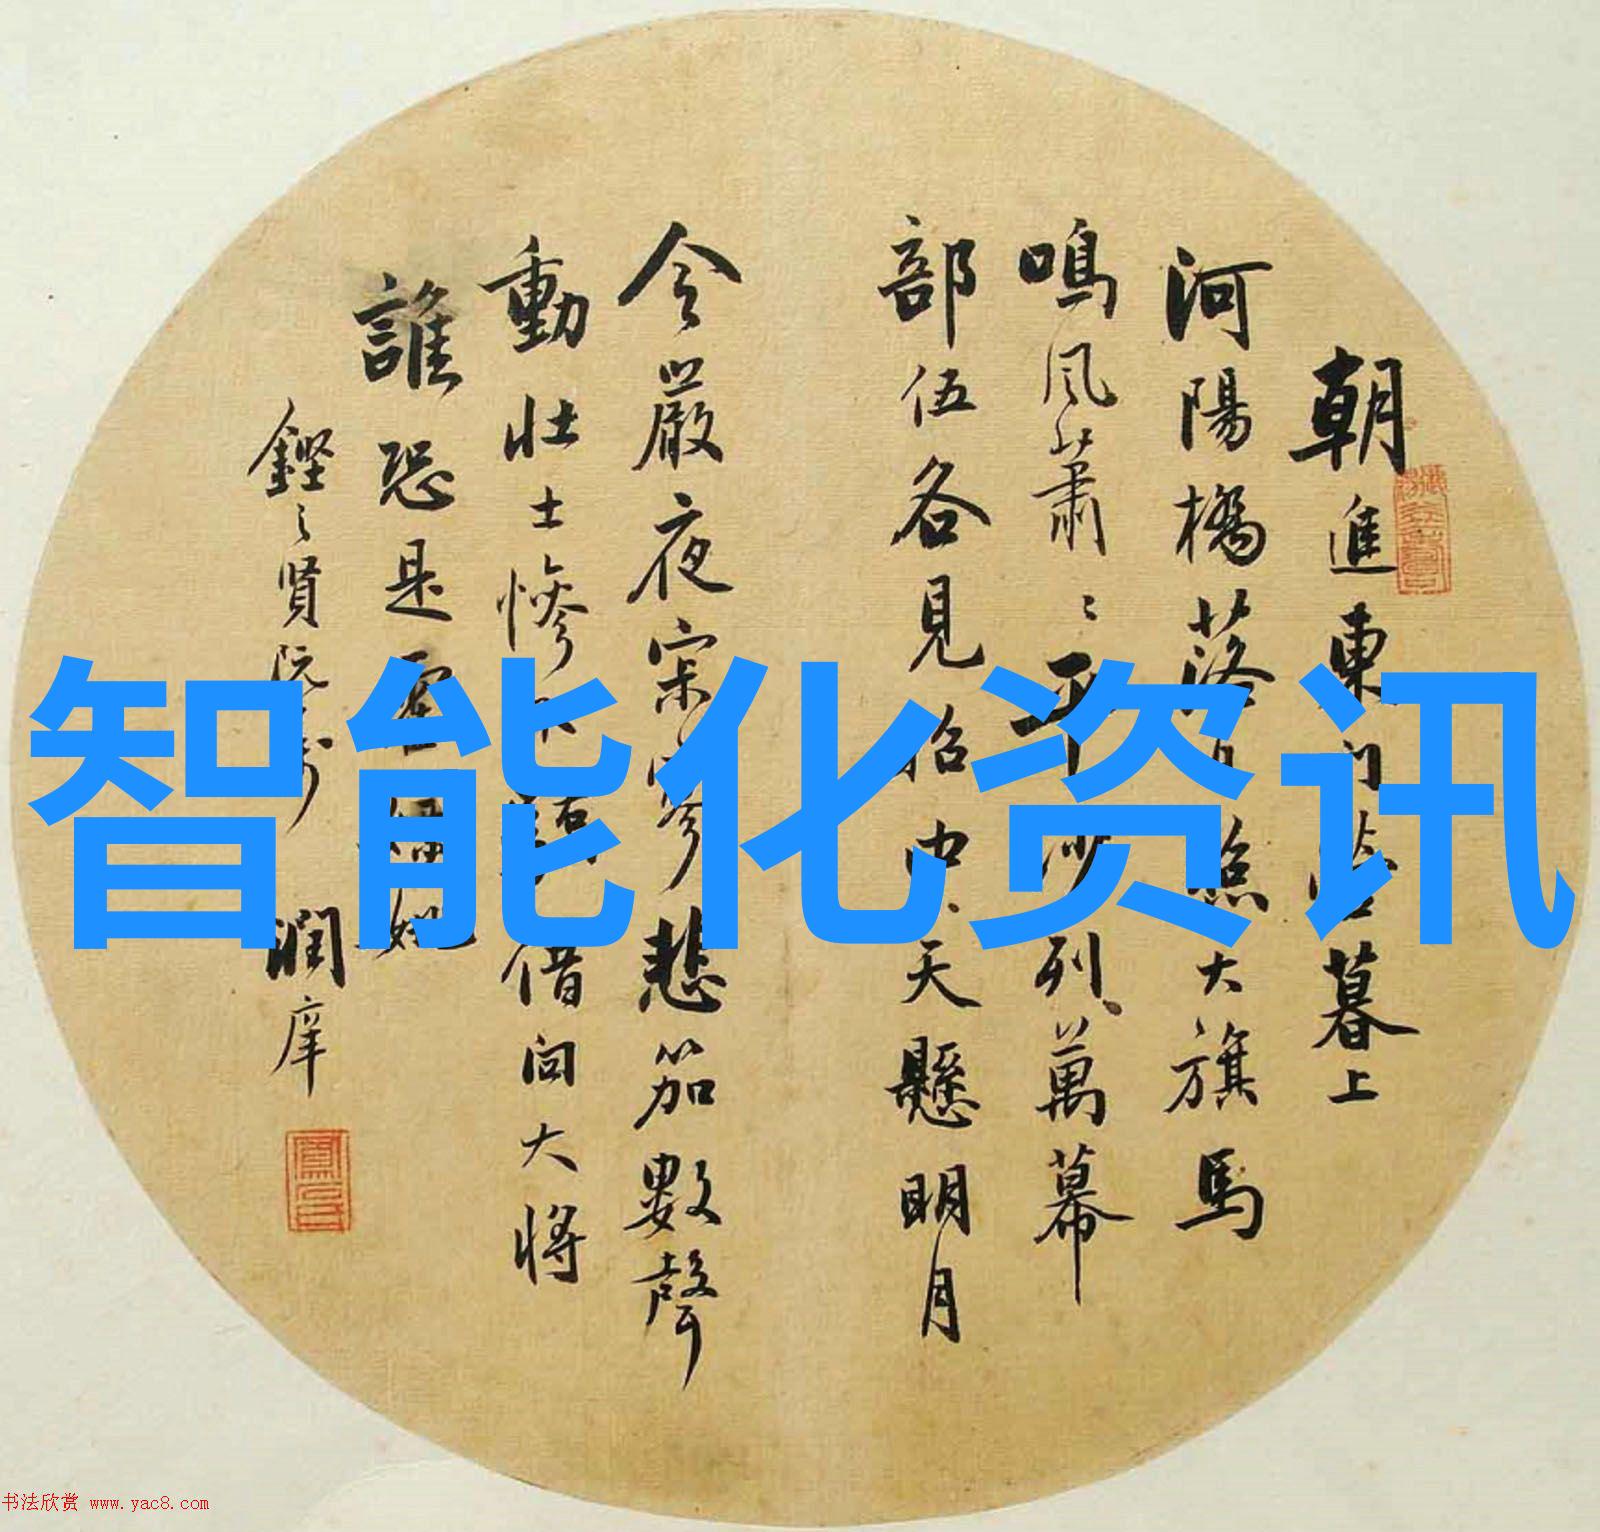 朝進東門營暮上
河陽橋落日照大旗馬
鳴風蕭〻平沙列萬幕
部伍各見招中天懸明月
令嚴夜寂寥悲笳數聲
動壯士慘不驕借問大將
誰恐是霍嫖姚
鏗之賢阮 潤庠
智能化资讯
书法欣赏 www.yac8.com